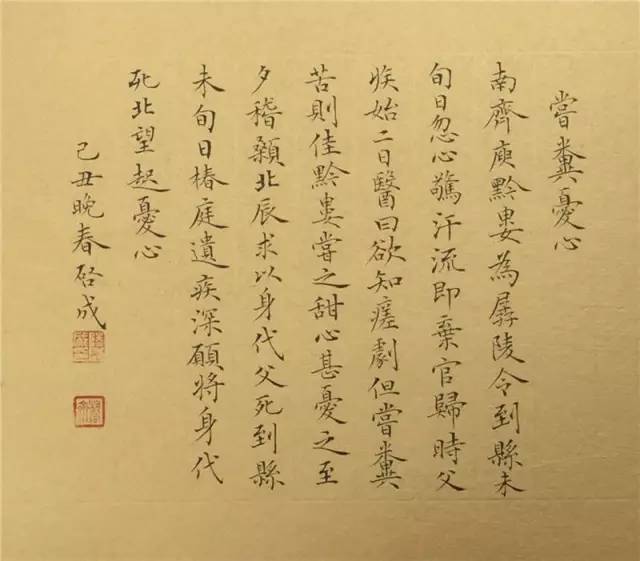 嘗糞憂心
南齊庾黔婁為孱陵令到縣未
旬日忽心驚汗流即棄官歸時父
疾始二日醫曰欲知瘥劇但嘗糞
苦則佳黔婁嘗之甜心甚憂之至
夕稽顙北辰求以身代父死到縣
未旬日椿庭遺疾深願將身代
死北望起憂心
己丑晚春啓成